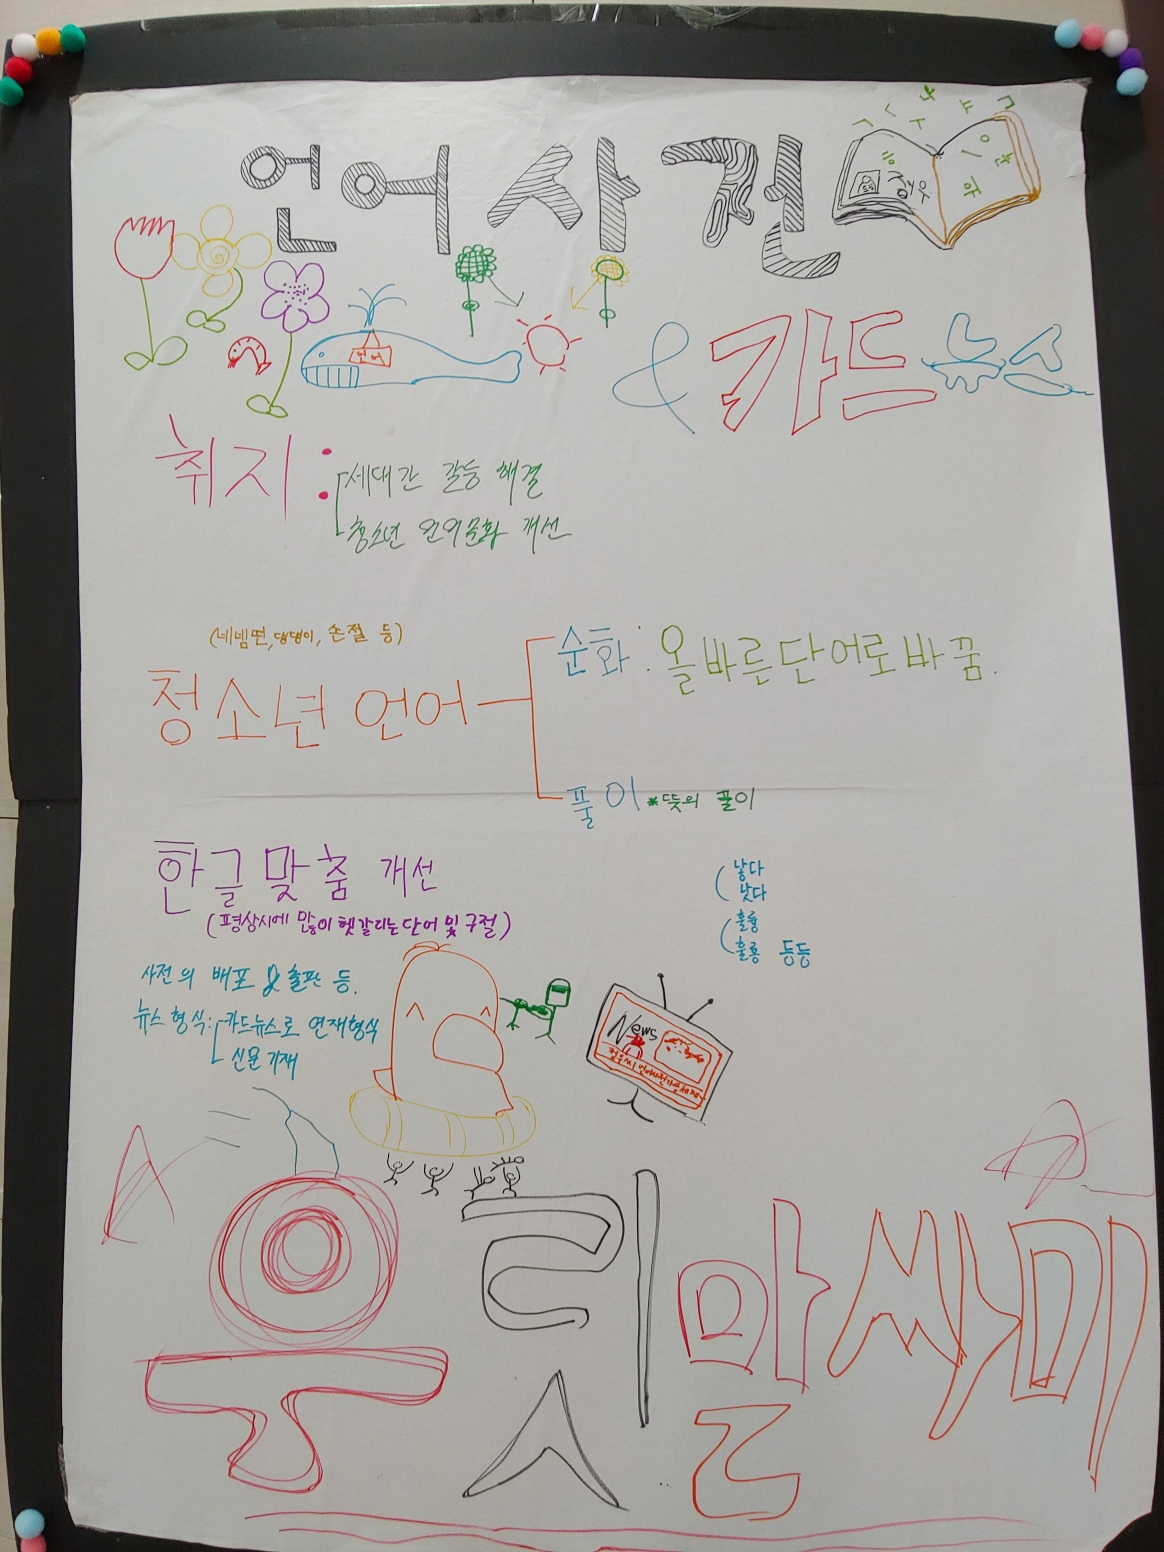 언어사전
언어
& 카드뉴스
취지 :
세대간 갈등 해결
청소년 언어문화 개선
(네넴띤, 댕댕이, 손절 등)
청소년 언어
순화 : 올바른 단어로 바꿈.
풀이 *뜻의 풀이
한글맞춤 개선
(평상시에 많이 헷갈리는 단어 및 구절)
낳다
낫다
훌륭
훌룡 등등
사전의 배포 & 출판 등.
뉴스 형식:
카드뉴스로 연재형식
신문 기재
News
우리말싸미